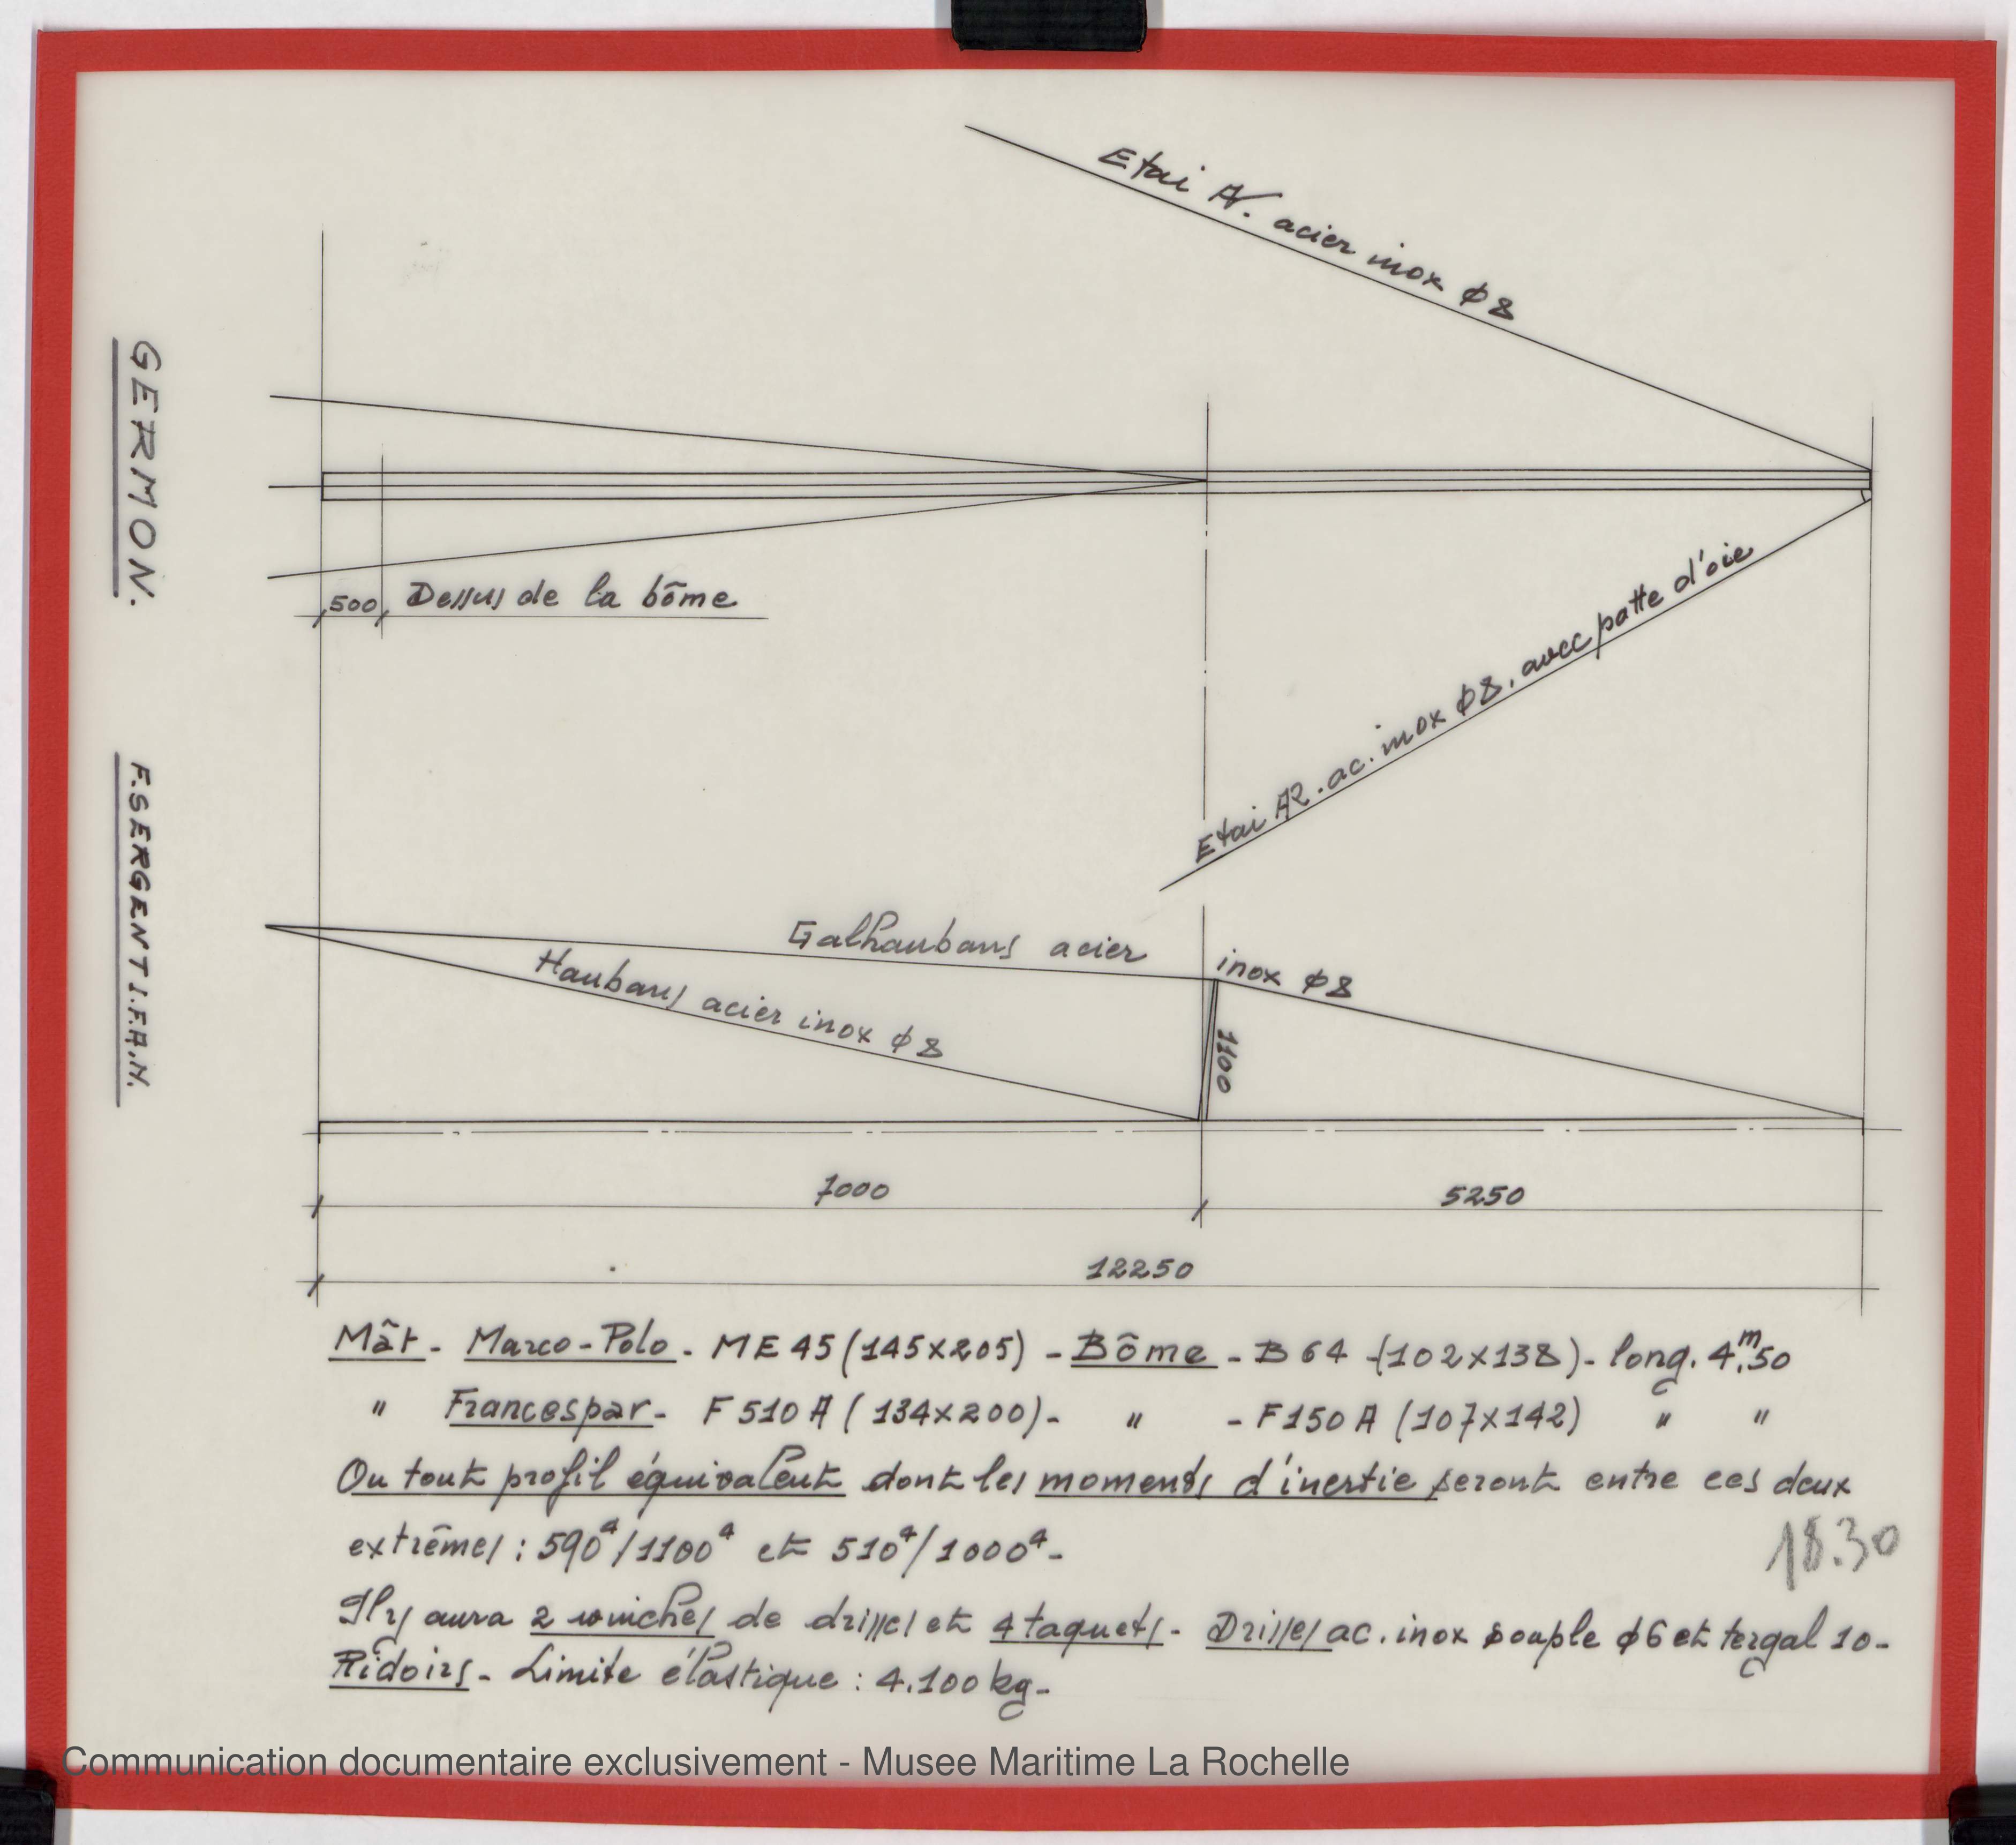 Etai AV. acier inox ϕ8
GERMON.
F.SERGENT I.F.A.N.
500 Dessus de la bôme
Etai AR. ac. inox ϕ8, avec patte d'oie
Galhaubans acier inox ϕ8
Haubans acier inox ϕ8
1100
7000 5250
12250
Mât - Marco-Polo - ME 45 (145x205) - Bôme - B 64 - (102x138) - long. 4.m50
" Francespar - F 510 A (134x200) - " - F 150 A (107x142) " "
Ou tout profil équivalent dont les moments d'inertie seront entre ces deux
extrêmes : 590⁴/1100⁴ et 510⁴/1000⁴ -
Il y aura 2 winches de drisses et 4 taquets - Drisses ac. inox souple ϕ6 et tergal 10 -
18.30
Ridoirs - Limite élastique : 4.100 kg -
Communication documentaire exclusivement - Musee Maritime La Rochelle